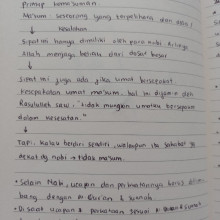 Prinsip kema'suman
Ma'sum seseorang (yang terpelihara dari dosa)
kesalahan
Sifat ini hanya dimiliki oleh para nabi, krn
Allah menjaga beliau dari dosa besar
Sifat ini juga ada jika umat bersepakat
kesepakatan umat ma'sum. hal ini dijamin
Rasulullah saw : "tidak mungkin umatku bersepakat
dalam kesesatan."
Tapi kalau berdiri sendiri, walaupun itu sahabat
dekat dg nabi → tidak ma'sum.
• Selain Nabi, ucapan dan perbuatannya harus
bang dengan Qur'an & sunnah.
• Disaat ucapan + perbuatan sesuai